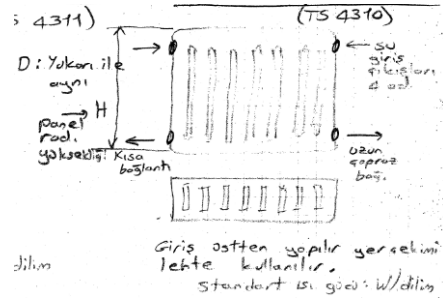 5 4311)
(TS 4310)
D: Yukarı ile
aynı
H
panel
rad.
yüksekliği
Kısa
bağlantı
su
giriş
çıkışları
4 ad.
uzun
çapraz
bağ.
Giriş üstten yapılır yerçekimi
lehte kullanılır.
dilim
Standart ısı gücü: W/dilim